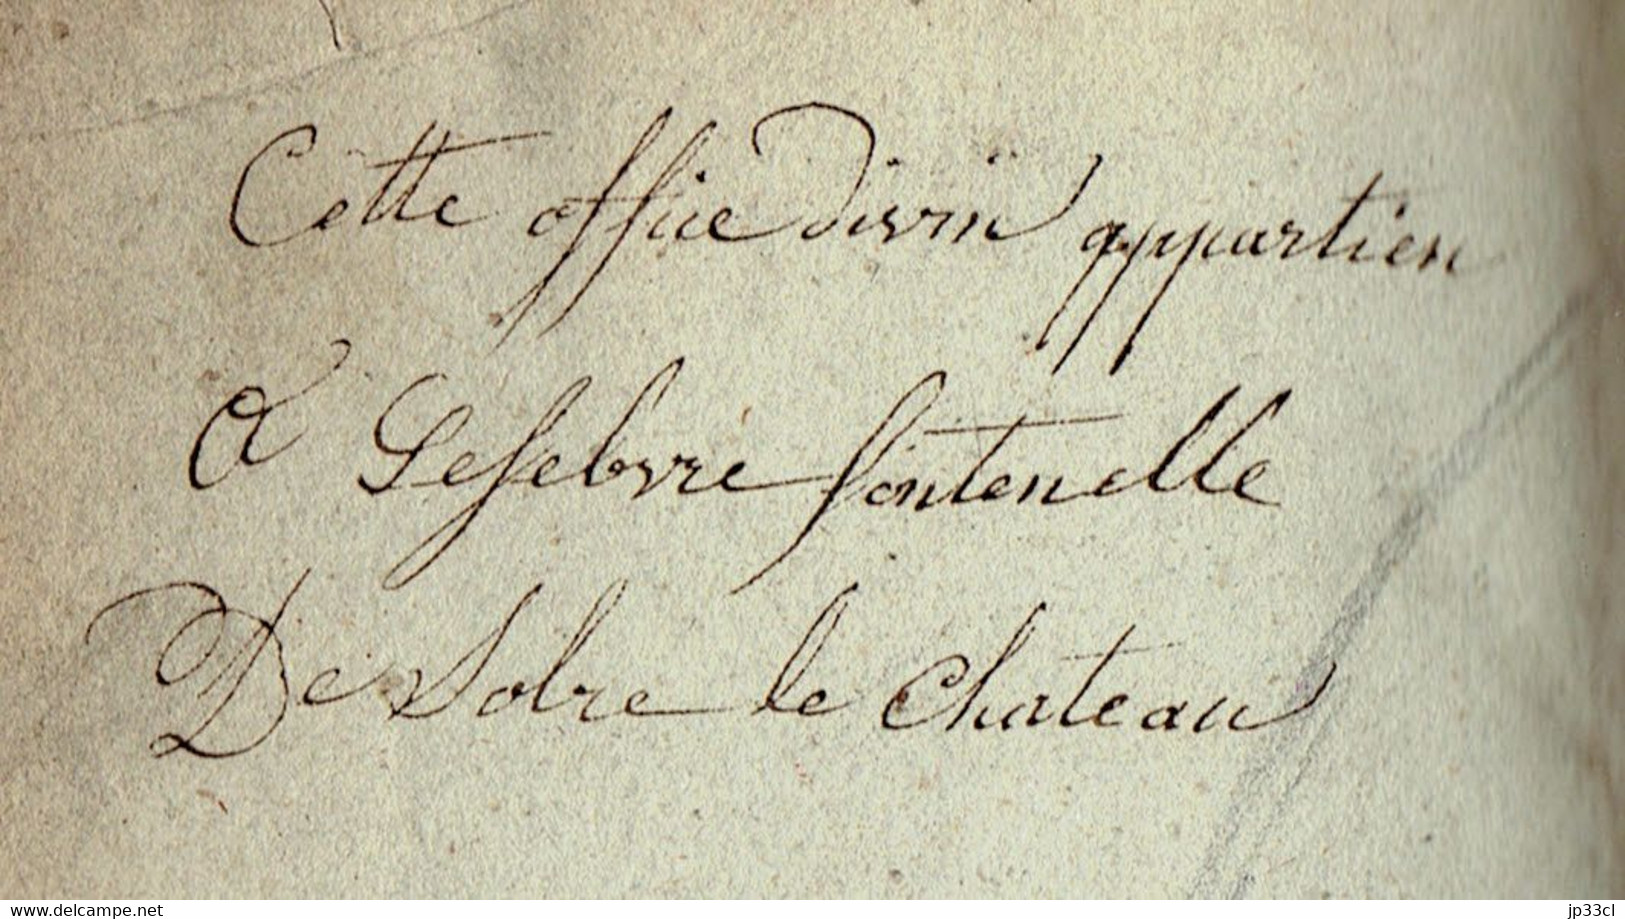 Cette office divin appartien
a Lefebvre fontenelle
De Solre le Chateau
www.delcampe.net
jp33cl